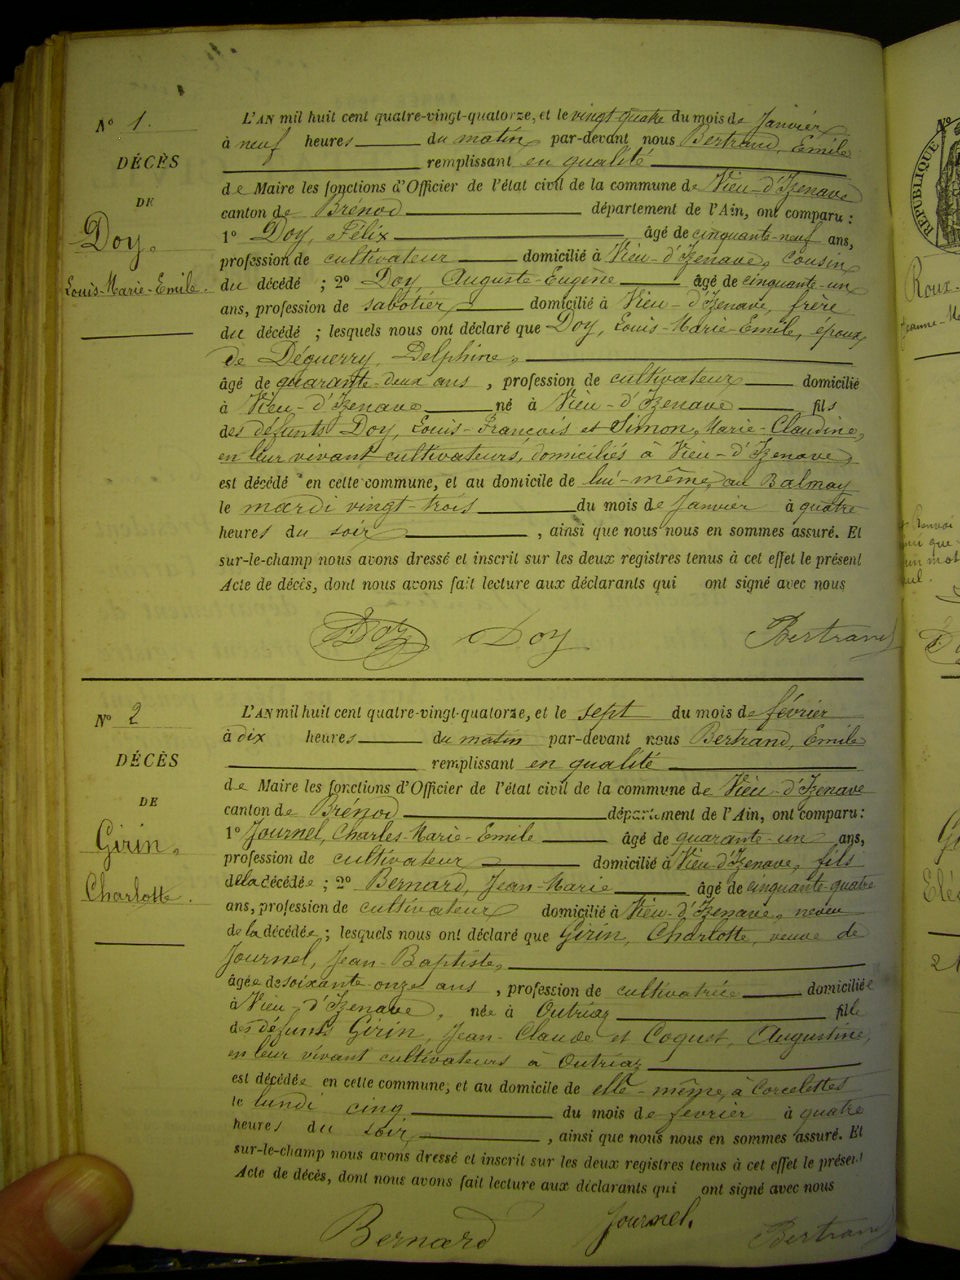 N° 1.
DÉCÈS
DE
Doy,
Louis-Marie-Emile.
L'AN mil huit cent quatre-vingt-quatorze, et le vingt-quatre du mois de Janvier
à neuf heures du matin par-devant nous Bertrand, Emile
remplissant en qualité
de Maire les fonctions d'Officier de l'état civil de la commune de Vieu-d'Izenave
canton de Brénod département de l'Ain, ont comparu :
1° Doy, Félix âgé de cinquante-neuf ans,
profession de cultivateur domicilié à Vieu-d'Izenave, cousin
du décédé ; 2° Doy, Auguste-Eugène âgé de cinquante-un
ans, profession de sabotier domicilié à Vieu-d'Izenave, frère
du décédé ; lesquels nous ont déclaré que Doy, Louis-Marie-Emile, époux
de Déguerry, Delphine,
âgé de quarante-deux ans , profession de cultivateur domicilié
à Vieu-d'Izenave né à Vieu-d'Izenave fils
des défunts Doy, Louis-François et Simon, Marie-Claudine,
en leur vivant cultivateurs, domiciliés à Vieu-d'Izenave,
est décédé en cette commune, et au domicile de lui-même, au Balmay
le mardi vingt-trois du mois de Janvier à quatre
heures du soir , ainsi que nous nous en sommes assuré. Et
sur-le-champ nous avons dressé et inscrit sur les deux registres tenus à cet effet le présent
Acte de décès, dont nous avons fait lecture aux déclarants qui ont signé avec nous
Doy Doy Bertrand
N° 2
DÉCÈS
DE
Girin,
Charlotte.
L'AN mil huit cent quatre-vingt-quatorze, et le sept du mois de février
à dix heures du matin par-devant nous Bertrand, Emile
remplissant en qualité
de Maire les fonctions d'Officier de l'état civil de la commune de Vieu-d'Izenave
canton de Brénod département de l'Ain, ont comparu :
1° Journel, Charles-Marie-Emile âgé de quarante-un ans,
profession de cultivateur domicilié à Vieu-d'Izenave, fils
de la décédée ; 2° Bernard, Jean-Marie âgé de cinquante-quatre
ans, profession de cultivateur domicilié à Vieu-d'Izenave, neveu
de la décédée ; lesquels nous ont déclaré que Girin, Charlotte, veuve de
Journel, Jean-Baptiste,
âgée de soixante-onze ans , profession de cultivatrice domiciliée
à Vieu-d'Izenave, née à Outriaz fille
des défunts Girin, Jean-Claude et Coquet, Augustine,
en leur vivant cultivateurs à Outriaz
est décédée en cette commune, et au domicile de elle-même, à Corcelettes
le lundi cinq du mois de février à quatre
heures du soir, , ainsi que nous nous en sommes assuré. Et
sur-le-champ nous avons dressé et inscrit sur les deux registres tenus à cet effet le présent
Acte de décès, dont nous avons fait lecture aux déclarants qui ont signé avec nous
Bernard Journel. Bertrand
RÉPUBLIQUE
Roux